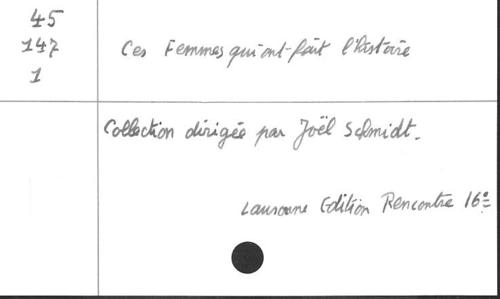 45
147 Ces Femmes qui ont-fait l'histoire
1
Collection dirigée par Joël Schmidt.
Lausanne Edition Rencontre 16°